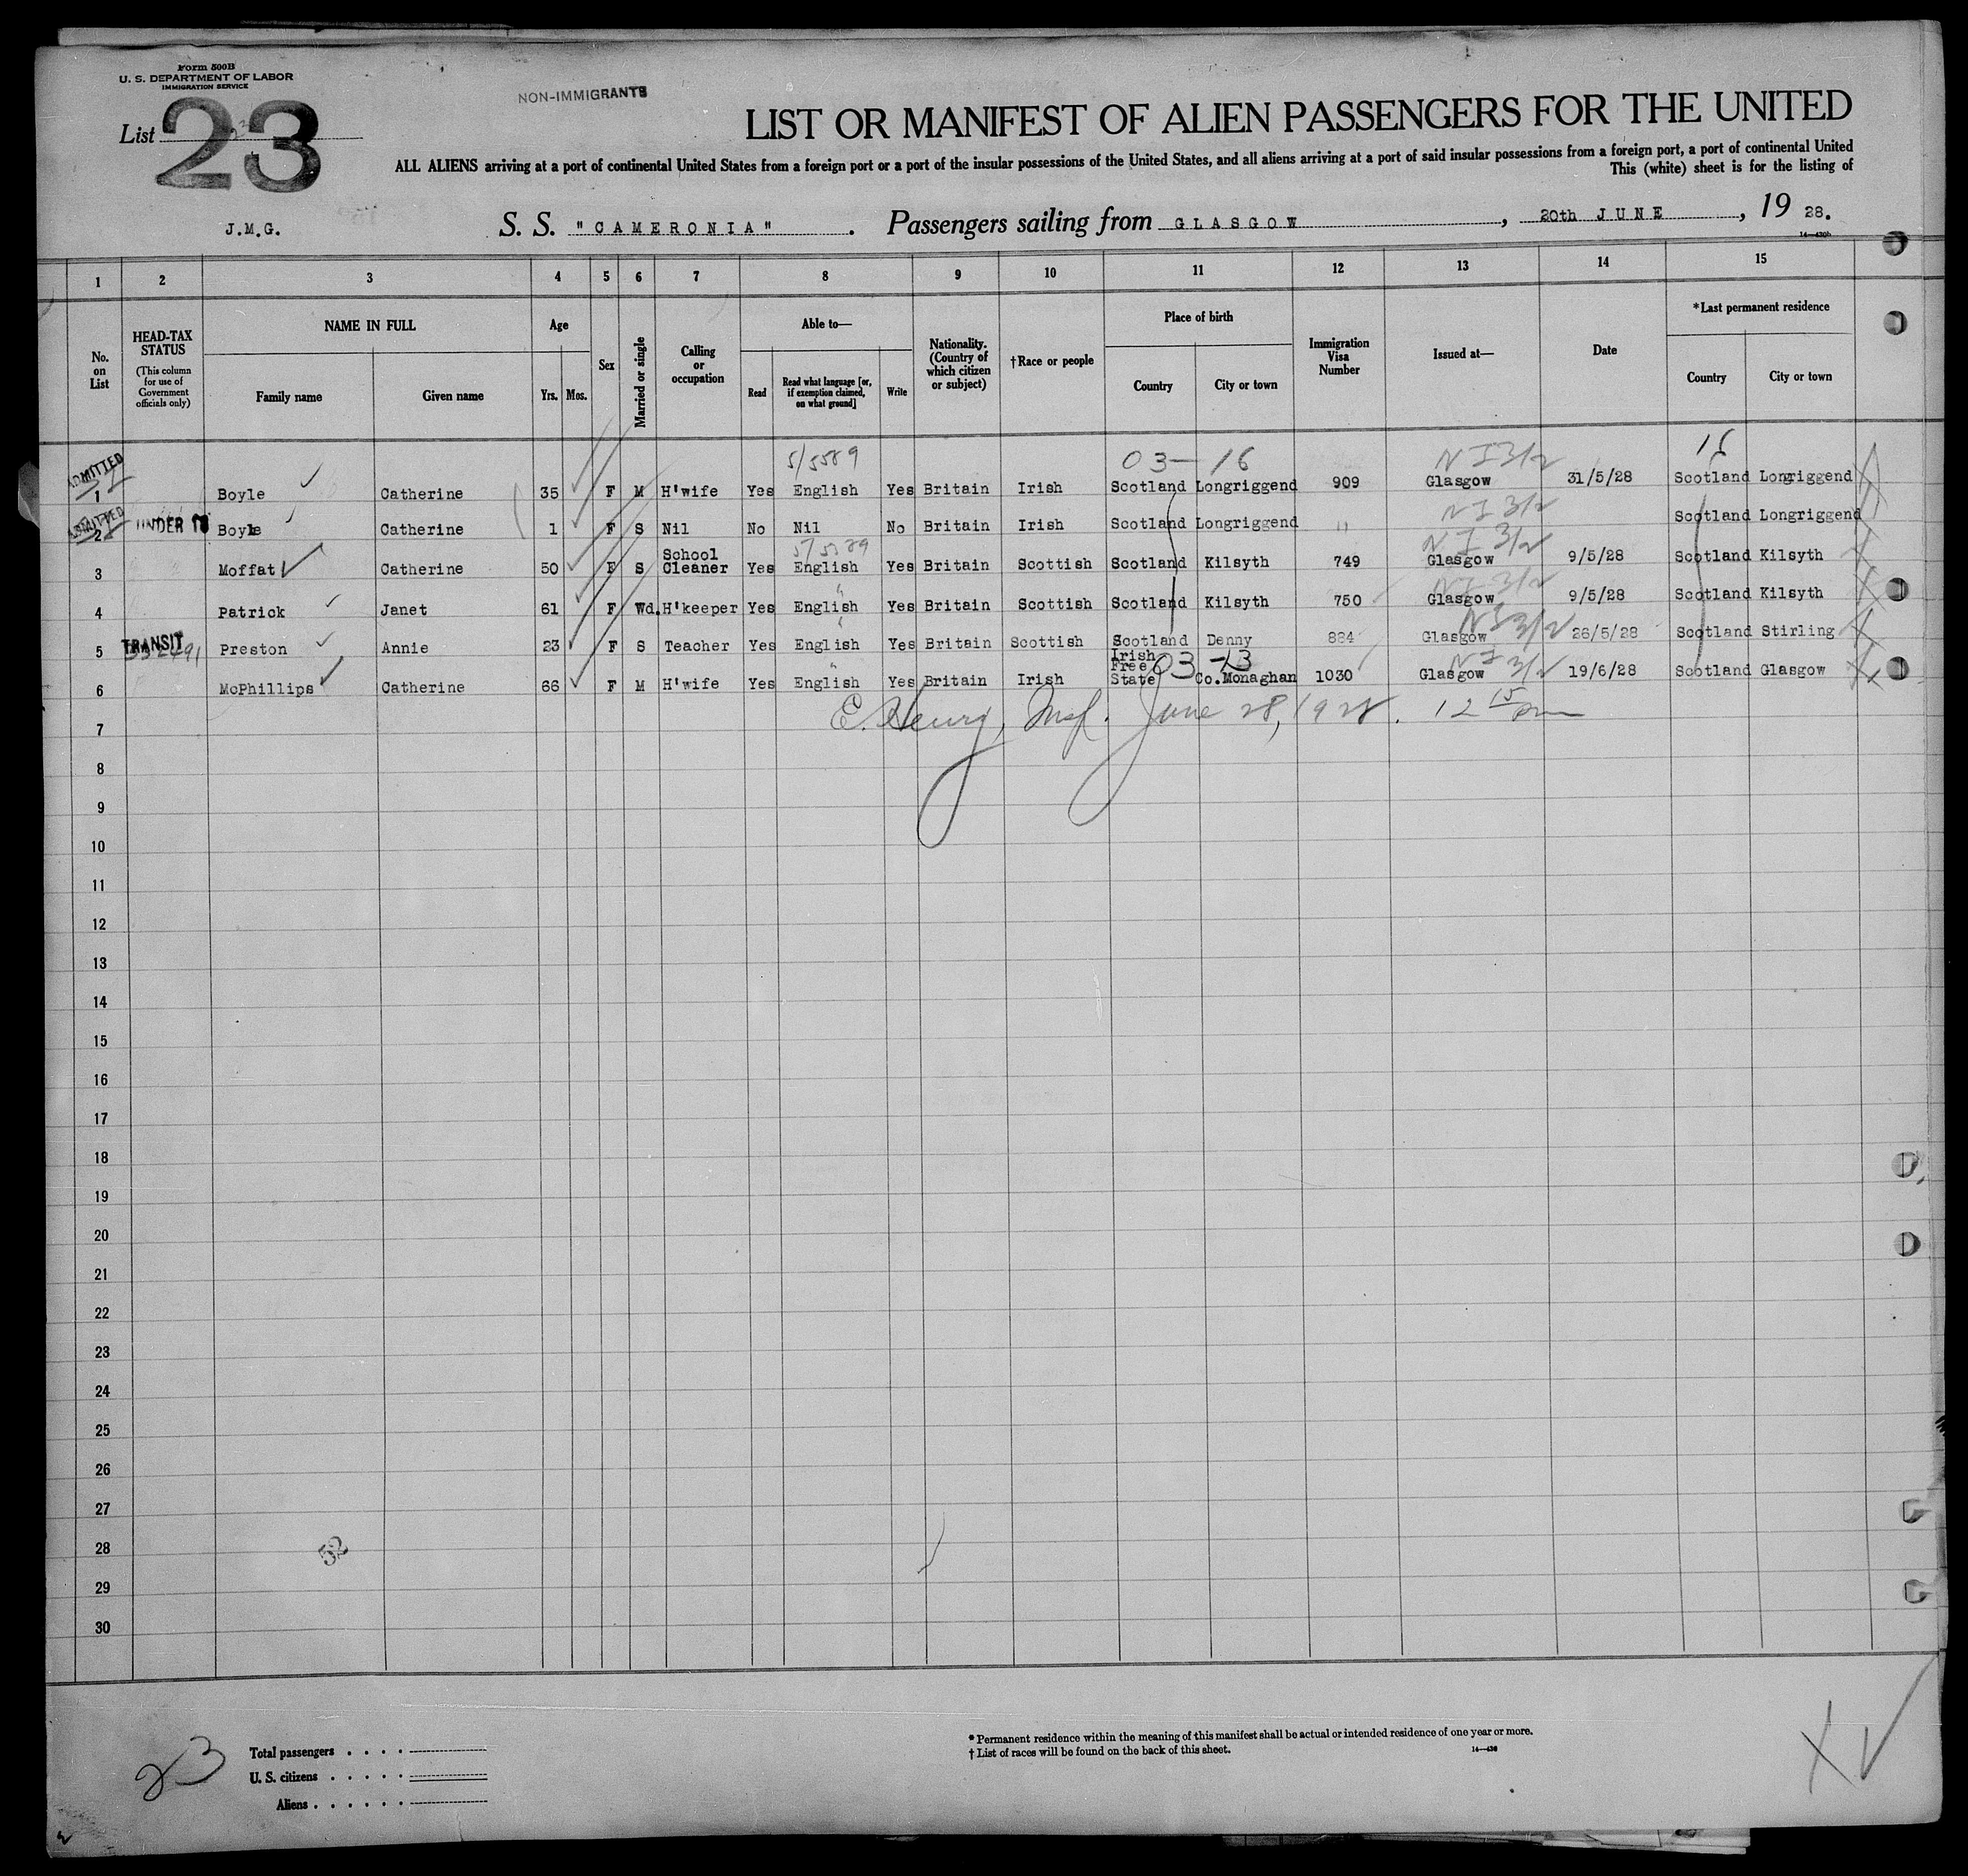 Form 500B
U. S. DEPARTMENT OF LABOR
IMMIGRATION SERVICE
NON-IMMIGRANTS
List 23
LIST OR MANIFEST OF ALIEN PASSENGERS FOR THE UNITED
ALL ALIENS arriving at a port of continental United States from a foreign port or a port of the insular possessions of the United States, and all aliens arriving at a port of said insular possessions from a foreign port, a port of continental United
This (white) sheet is for the listing of
J.M.G. S. S. "CAMERONIA". Passengers sailing from GLASGOW, 20th JUNE, 19 28.
1 2 3 4 5 6 7 8 9 10 11 12 13 14 15
No. on List
HEAD-TAX STATUS
(This column for use of Government officials only)
NAME IN FULL
Family name Given name
Age
Yrs. Mos.
Sex
Married or single
Calling or occupation
Able to—
Read
Read what language [or, if exemption claimed, on what ground]
Write
Nationality. (Country of which citizen or subject)
†Race or people
Place of birth
Country City or town
Immigration Visa Number
Issued at—
Date
*Last permanent residence
Country City or town
5/5589 03 – 16 N I 3/2 16
ADMITTED
1 Boyle Catherine 35 F M H'wife Yes English Yes Britain Irish Scotland Longriggend 909 Glasgow 31/5/28 Scotland Longriggend
N I 3/2
ADMITTED
2 UNDER 16 Boyle Catherine 1 F S Nil No Nil No Britain Irish Scotland Longriggend " Scotland Longriggend
5/5589 N I 3/2
3 Moffat Catherine 50 F S School Cleaner Yes English Yes Britain Scottish Scotland Kilsyth 749 Glasgow 9/5/28 Scotland Kilsyth
N I 3/2
4 Patrick Janet 61 F Wd. H'keeper Yes English Yes Britain Scottish Scotland Kilsyth 750 Glasgow 9/5/28 Scotland Kilsyth
N I 3/2
TRANSIT
5 Preston Annie 23 F S Teacher Yes English Yes Britain Scottish Scotland Denny 884 Glasgow 26/5/28 Scotland Stirling
03 – 13 N I 3/2
6 McPhillips Catherine 66 F M H'wife Yes English Yes Britain Irish Irish Free State Co.Monaghan 1030 Glasgow 19/6/28 Scotland Glasgow
E. Henry, Insp. June 28, 1928. 12 15 pm
7
8
9
10
11
12
13
14
15
16
17
18
19
20
21
22
23
24
25
26
27
28
52
29
30
23
Total passengers
U. S. citizens
Aliens
* Permanent residence within the meaning of this manifest shall be actual or intended residence of one year or more.
† List of races will be found on the back of this sheet.
14—430